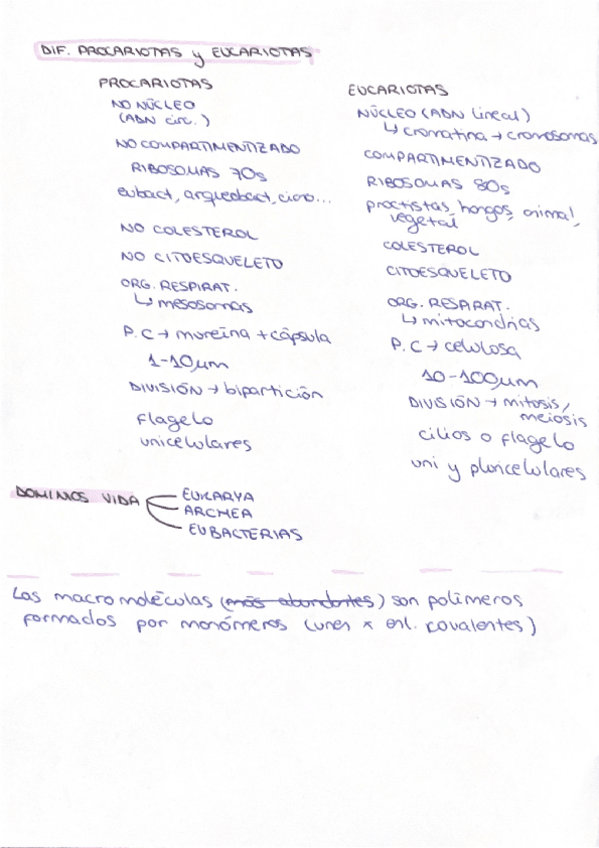 DIF. PROCARIOTAS y EUCARIOTAS
PROCARIOTAS
NO NÚCLEO
(ADN circ.)
NO COMPARTIMENTIZADO
RIBOSOMAS 70s
eubact, arqueobact, ciano...
NO COLESTEROL
NO CITOESQUELETO
ORG. RESPIRAT.
↳ mesosomas
P.C → mureína + cápsula
1-10 μm
DIVISIÓN → bipartición
flagelo
unicelulares
EUCARIOTAS
NÚCLEO (ADN lineal)
↳ cromatina → cromosomas
COMPARTIMENTIZADO
RIBOSOMAS 80s
proctistas, hongos, animal,
vegetal
COLESTEROL
CITOESQUELETO
ORG. RESPIRAT.
↳ mitocondrias
P.C → celulosa
10-100 μm
DIVISIÓN → mitosis,
meiosis
cilios o flagelo
uni y pluricelulares
DOMINIOS VIDA
EUKARYA
ARCHEA
EUBACTERIAS
Las macromoléculas (más abundantes) son polímeros
formados por monómeros (unen x enl. covalentes)